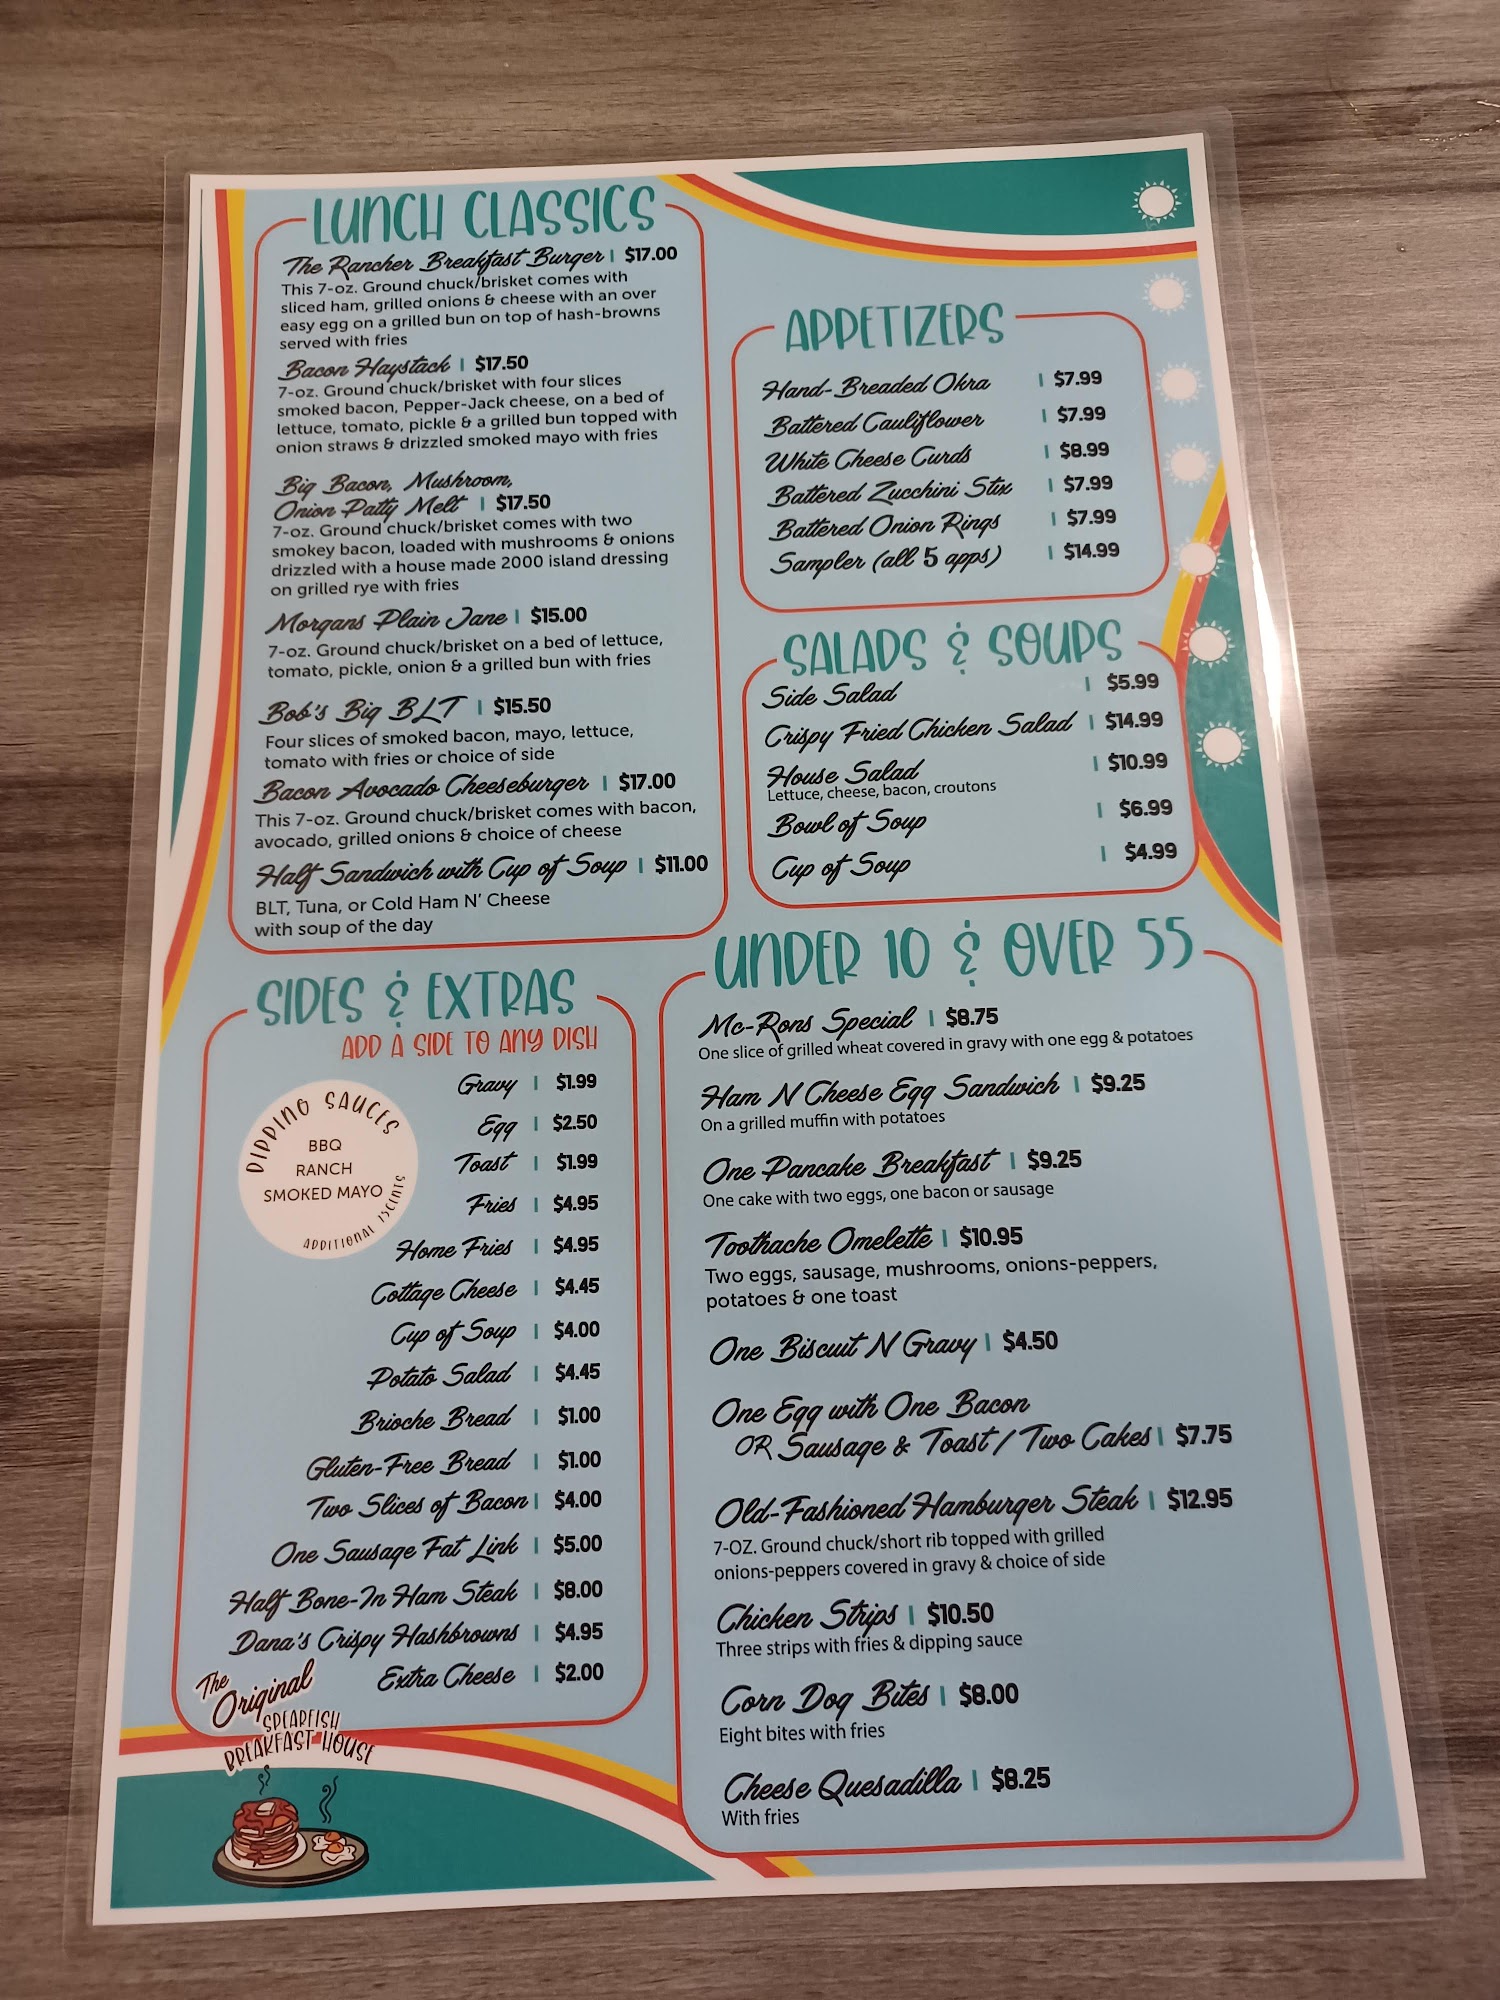 LUNCH CLASSICS
The Rancher Breakfast Burger | $17.00
This 7-oz. Ground chuck/brisket comes with
sliced ham, grilled onions & cheese with an over
easy egg on a grilled bun on top of hash-browns
served with fries
Bacon Haystack | $17.50
7-oz. Ground chuck/brisket with four slices
smoked bacon, Pepper-Jack cheese, on a bed of
lettuce, tomato, pickle & a grilled bun topped with
onion straws & drizzled smoked mayo with fries
Big Bacon, Mushroom,
Onion Patty Melt | $17.50
7-oz. Ground chuck/brisket comes with two
smokey bacon, loaded with mushrooms & onions
drizzled with a house made 2000 island dressing
on grilled rye with fries
Morgans Plain Jane | $15.00
7-oz. Ground chuck/brisket on a bed of lettuce,
tomato, pickle, onion & a grilled bun with fries
Bob's Big BLT | $15.50
Four slices of smoked bacon, mayo, lettuce,
tomato with fries or choice of side
Bacon Avocado Cheeseburger | $17.00
This 7-oz. Ground chuck/brisket comes with bacon,
avocado, grilled onions & choice of cheese
Half Sandwich with Cup of Soup | $11.00
BLT, Tuna, or Cold Ham N' Cheese
with soup of the day
APPETIZERS
Hand-Breaded Okra | $7.99
Battered Cauliflower | $7.99
White Cheese Curds | $8.99
Battered Zucchini Stix | $7.99
Battered Onion Rings | $7.99
Sampler (all 5 apps) | $14.99
SALADS & SOUPS
Side Salad | $5.99
Crispy Fried Chicken Salad | $14.99
House Salad | $10.99
Lettuce, cheese, bacon, croutons
Bowl of Soup | $6.99
Cup of Soup | $4.99
SIDES & EXTRAS
ADD A SIDE TO ANY DISH
DIPPING SAUCES
BBQ
RANCH
SMOKED MAYO
ADDITIONAL 75CENTS
Gravy | $1.99
Egg | $2.50
Toast | $1.99
Fries | $4.95
Home Fries | $4.95
Cottage Cheese | $4.45
Cup of Soup | $4.00
Potato Salad | $4.45
Brioche Bread | $1.00
Gluten-Free Bread | $1.00
Two Slices of Bacon | $4.00
One Sausage Fat Link | $5.00
Half Bone-In Ham Steak | $8.00
Dana's Crispy Hashbrowns | $4.95
Extra Cheese | $2.00
The
Original
SPEARFISH
BREAKFAST HOUSE
UNDER 10 & OVER 55
Mc-Rons Special | $8.75
One slice of grilled wheat covered in gravy with one egg & potatoes
Ham N Cheese Egg Sandwich | $9.25
On a grilled muffin with potatoes
One Pancake Breakfast | $9.25
One cake with two eggs, one bacon or sausage
Toothache Omelette | $10.95
Two eggs, sausage, mushrooms, onions-peppers,
potatoes & one toast
One Biscuit N Gravy | $4.50
One Egg with One Bacon
OR Sausage & Toast / Two Cakes | $7.75
Old-Fashioned Hamburger Steak | $12.95
7-OZ. Ground chuck/short rib topped with grilled
onions-peppers covered in gravy & choice of side
Chicken Strips | $10.50
Three strips with fries & dipping sauce
Corn Dog Bites | $8.00
Eight bites with fries
Cheese Quesadilla | $8.25
With fries